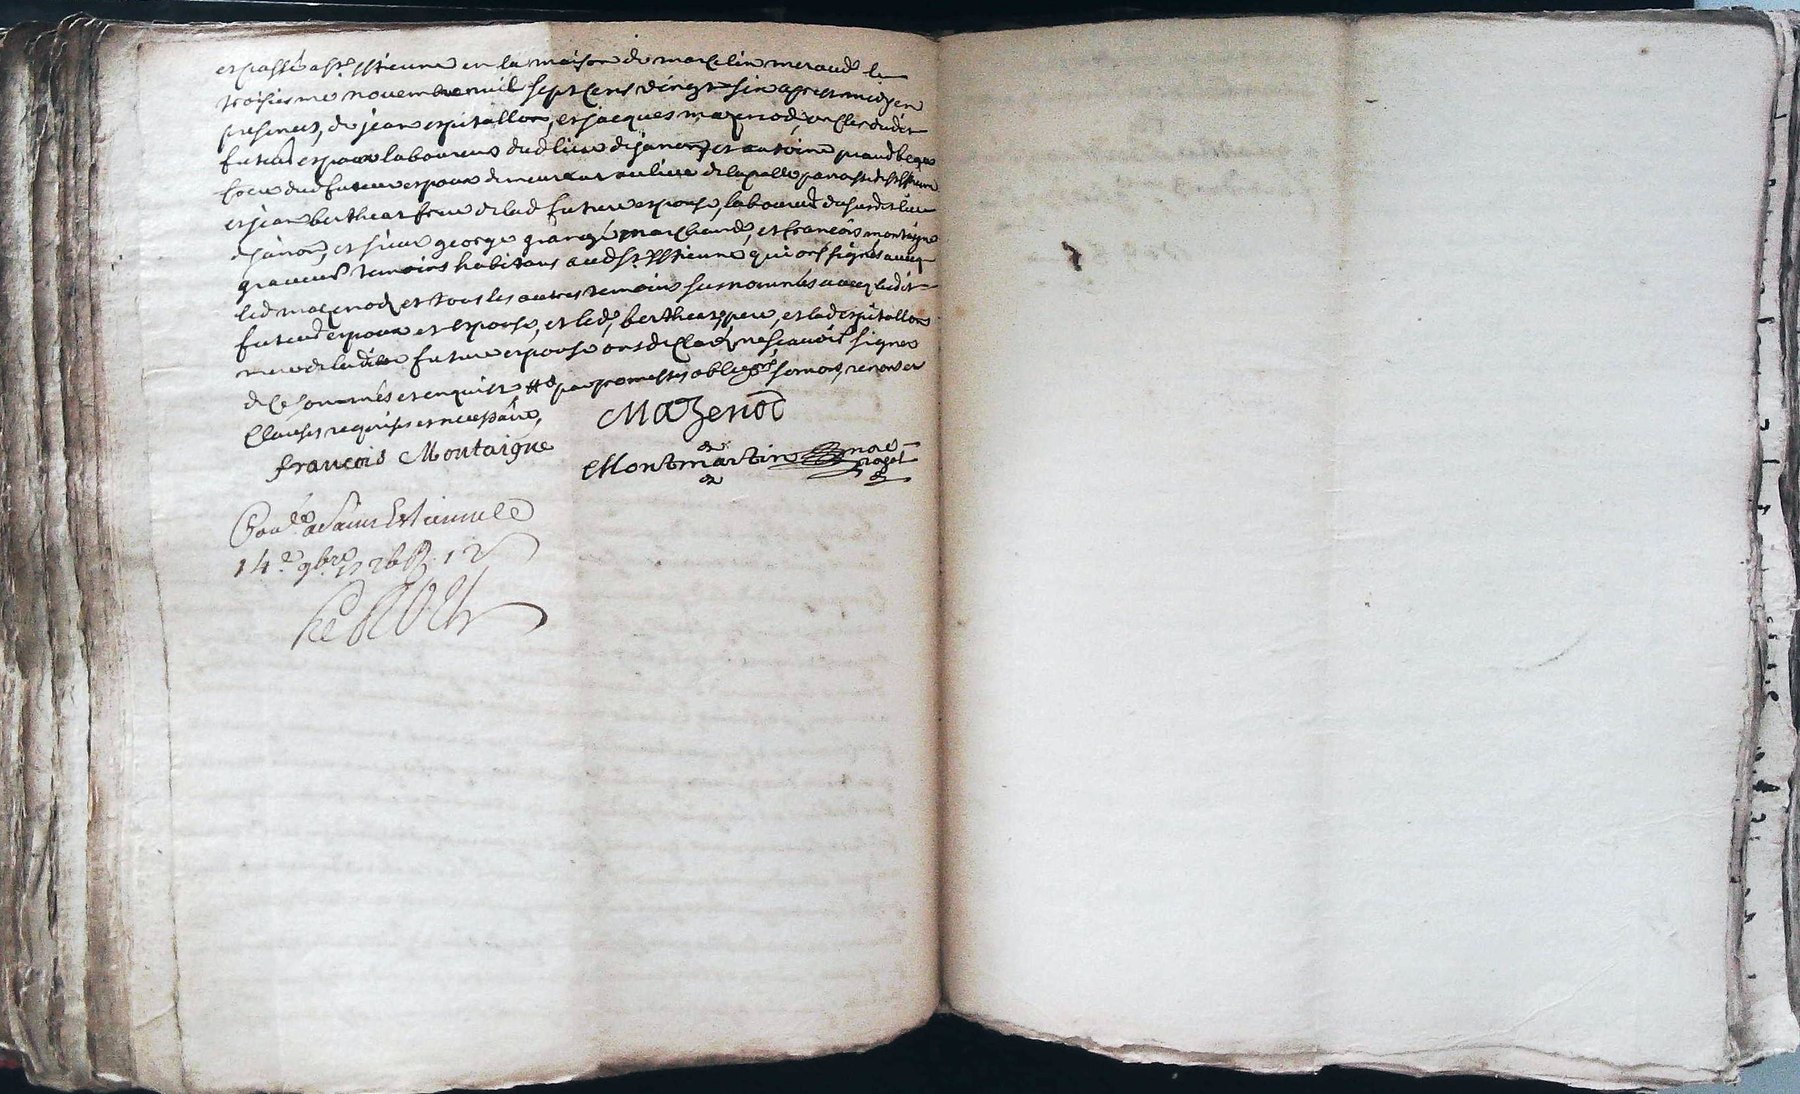 et passé a st. Estienne en la maison de marcelin meraud le
troisiesme novembre mil sept cens vingt six apres midy en
presences, de jean espitallon, et jacques mazenod, oncles dudit
futeur espoux laboureurs dud lieu de janon, et antoine praud beau
frere dud futeur espoux demeurant au lieu de la paroisse de st Estienne
et jean betheas frere de lad future espouse, laboureur du susdit lieu
de janon, et sieur george grangé marchand, et francois montaigne
graveur temoins habitans aud St. Estienne qui ont signés avecq
led mazenod et tous les autres temoins susnommés avecq ledit
futeur espoux et espouse, et led. betheas pere, et lad espitallon
mere de ladite future espouse ont declaré ne scavoir signer
de ce sommés et enquis par promesses obligeons soumons renoncer
Clauses requises et necessaire,
francois Montaigne
Mazenod
Montmartin no.re royal
Con.le a Saint Estienne le
14.e 9bre 1726 R. 12